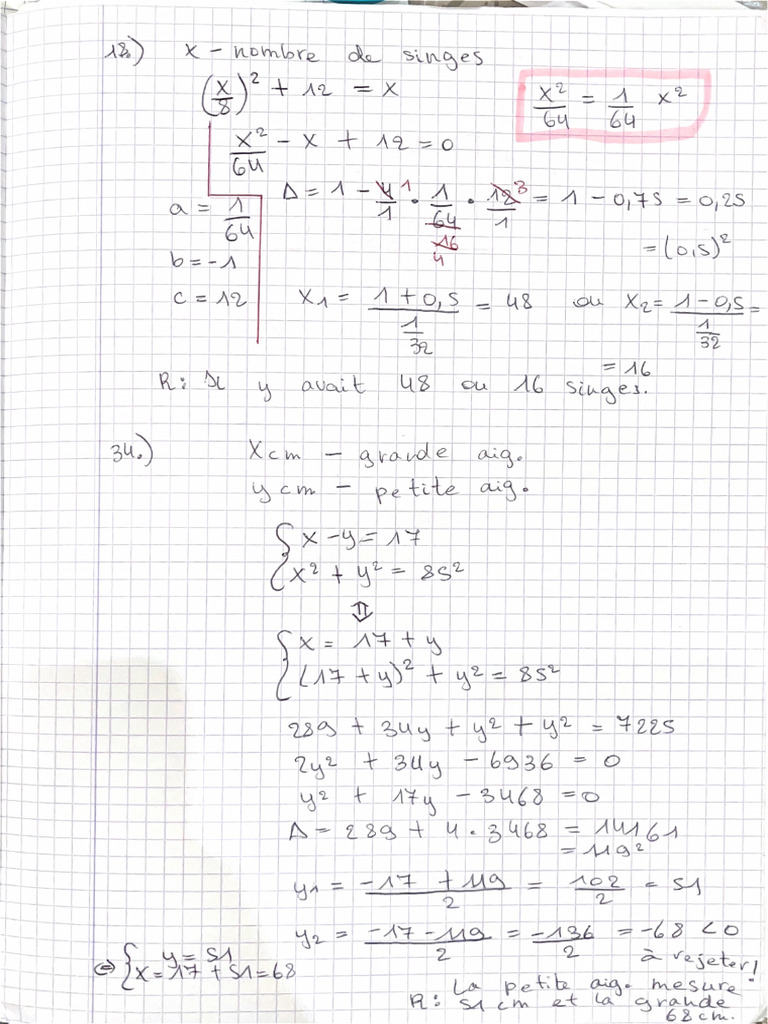 18.) x - nombre de singes
(x/8)² + 12 = x
x²/64 = 1/64 x²
x²/64 - x + 12 = 0
a = 1/64
Δ = 1 - 4/1 · 1/64 · 12/1 = 1 - 0,75 = 0,25
1 3
16
4
= (0,5)²
b = -1
c = 12
x1 = (1 + 0,5)/(1/32) = 48 ou x2 = (1 - 0,5)/(1/32) =
= 16
R: Il y avait 48 ou 16 singes.
34.) x cm - grande aig.
y cm - petite aig.
{ x - y = 17
{ x² + y² = 85²
⇕
{ x = 17 + y
{ (17 + y)² + y² = 85²
289 + 34y + y² + y² = 7225
2y² + 34y - 6936 = 0
y² + 17y - 3468 = 0
Δ = 289 + 4 · 3468 = 14161
= 119²
y1 = (-17 + 119)/2 = 102/2 = 51
y2 = (-17 - 119)/2 = -136/2 = -68 < 0
à rejeter!
⇔ { y = 51
{ x = 17 + 51 = 68
R: La petite aig. mesure
51 cm et la grande
68 cm.